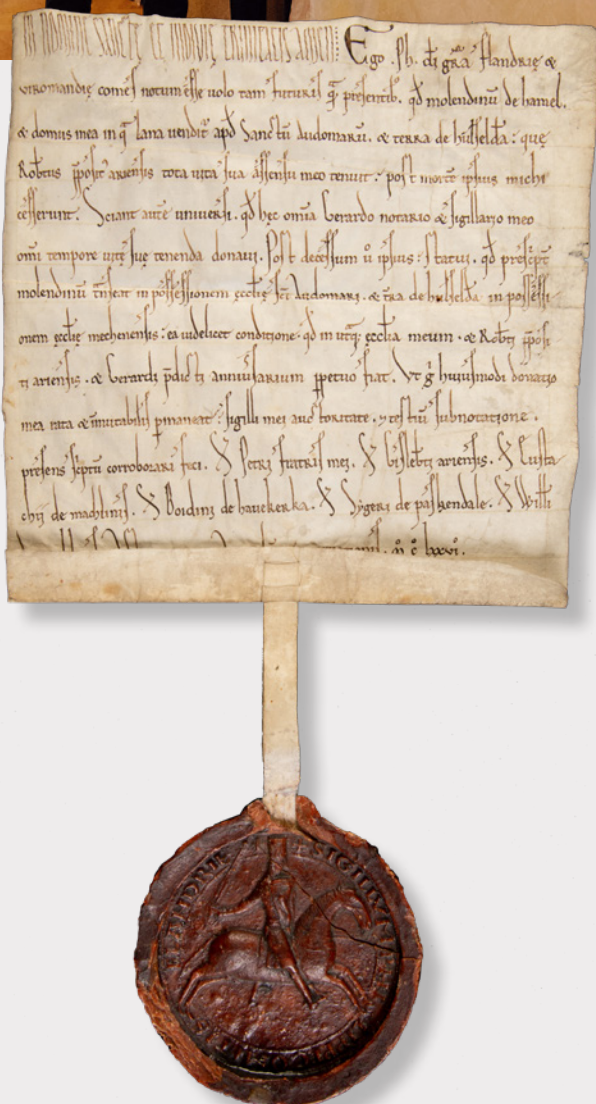 IN NOMINE SANCTĘ ET INDIVIDVĘ TRINITATIS AMEN Ego . Ph . di gr̄a flandrię &
viromandię comes notum esse uolo tam futuris q̄ presentib; . qd molendinū de hamel .
& domus mea in q̄ lana uendit̄ apd Sanctū Audomarū . & terra de hulselda : quę
Rob̄tus p̄posit̄ ariensis tota uita sua assensu meo tenuit : post mortē ipsius michi
cesserunt . Sciant autē uniuersi . qd hęc omia Gerardo notario & sigillario meo
omi tempore uitę suę tenenda donaui . Post decessum ū ipsius : statui . qd prescptū
molendinū trāseat in possessionem ecclię sci Audomari . & tr̄a de hulselda in possessi-
onem ęcclię mechenensis : ea uidelicet conditione . qd in utq; ęcclia meum . & Rob̄ti p̄posi
ti ariensis . & Gerardi p̄dicti anniūsarium ppetuo fiat . Vt g̊ huiusmodi donatio
mea rata & inuitabilis pmaneat : sigilli mei auctoritate . & testiū subnotatione .
presens sc̄ptū corroborari feci . S Petri fratris mei . S Gisleb̄ti ariensis . S Eusta
chii de machlinis . S Boidini de hauekerka . S Sygeri de paskendale . S Willi
m̊ c̊ lxxvi .
SIGILLVM